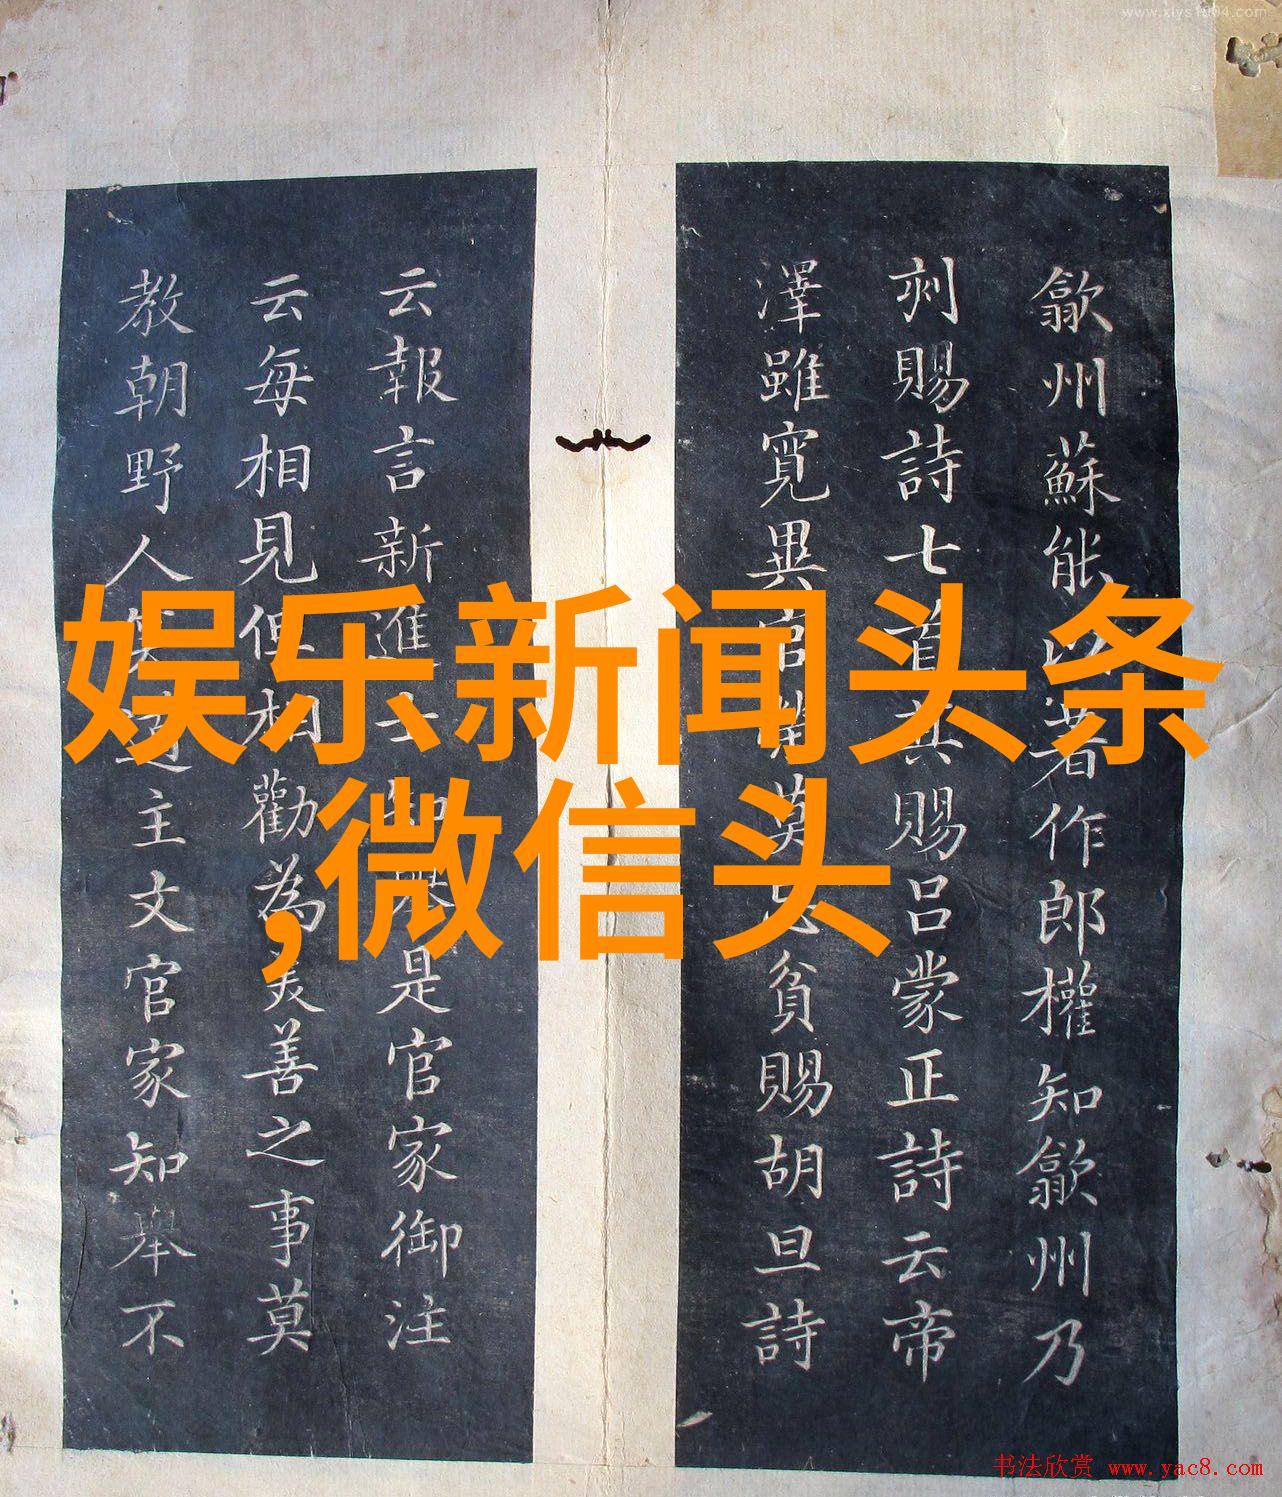 www.xlys1904.com
歙州蘇能以著作郎權知歙州乃
刾賜詩七首共賜呂蒙正詩云帝
澤雖寬異官莫忘貧賜胡旦詩
云報言新進士知是官家御注
云每相見但相勸為美善之事莫
教朝野人道主文官家知舉不
娱乐新闻头条
,微信头
书法欣赏 www.yac8.com